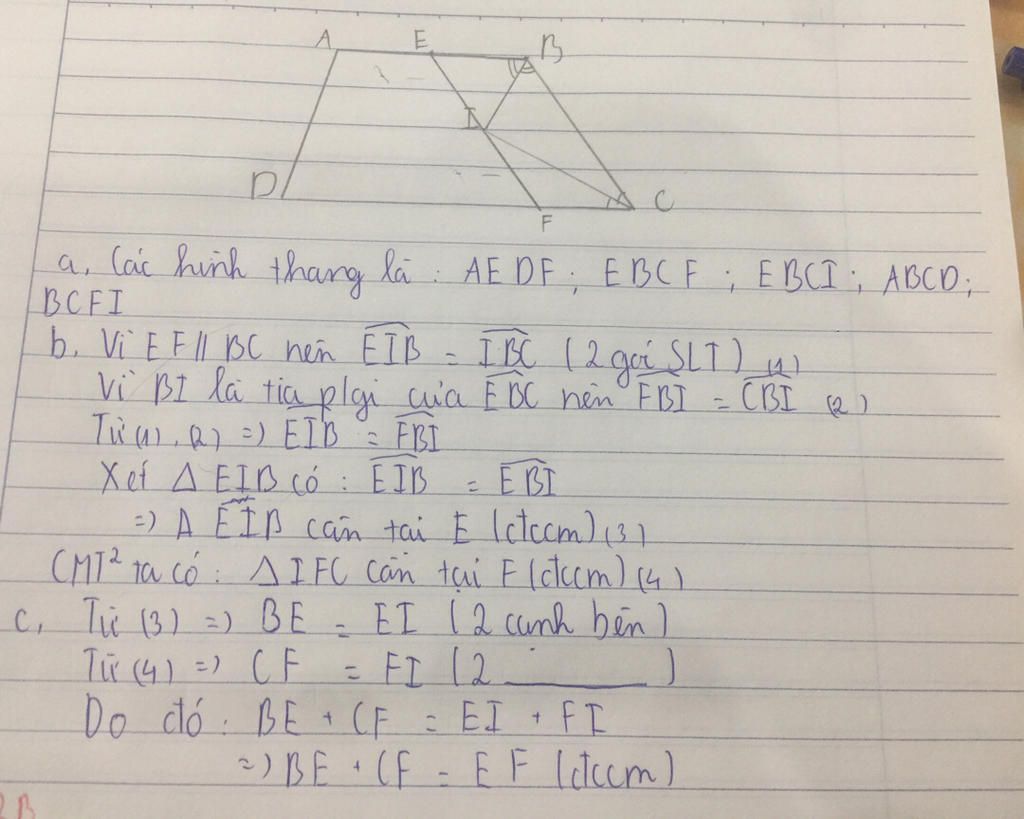 A E B
I
D F C
a, Các hình thang là : AEDF ; EBCF ; EBCI ; ABCD ;
BCFI
b, Vì EF // BC nên EIB = IBC (2 góc SLT) (1)
Vì BI là tia p/gi của EBC nên EBI = CBI (2)
Từ (1), (2) => EIB = EBI
Xét Δ EIB có : EIB = EBI
=> Δ EIB cân tại E (đccm) (3)
CMT² ta có : Δ IFC cân tại F (đccm) (4)
c, Từ (3) => BE = EI (2 cạnh bên)
Từ (4) => CF = FI (2 ______)
Do đó : BE + CF = EI + FI
=> BE + CF = EF (đccm)
2B